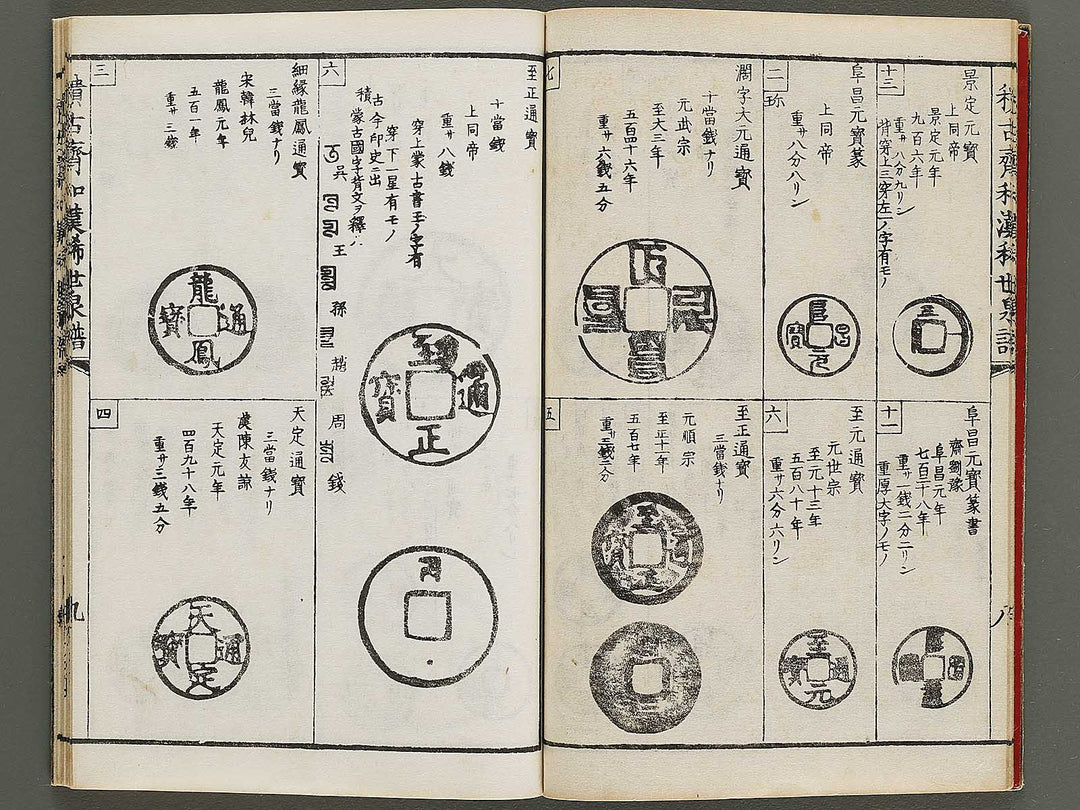 十三
景定元寶
上同帝
景定元年
九百六年
重サ八分九リン
背穿上三穿左一ノ字有モノ
三
十一
阜昌元寶篆書
齊劉豫
阜昌元年
七百二十八年
重サ一錢二分二リン
重厚大字ノモノ
二
珎
阜昌元寶篆
上同帝
重サ八分八リン
阜昌元寶
六
至元通寶
元世宗
至元十三年
五百八十年
重サ六分六リン
至元通寶
七
濶字大元通寶
十當錢ナリ
元武宗
至大三年
五百四十六年
重サ六錢五分
五
至正通寶
三當錢ナリ
元順宗
至正十一年
五百七年
重サ三錢二分
至正通寶
三
八
至正通寶
十當錢
上同帝
重サ八錢
穿上蒙古書王ノ字有
穿下一星有モノ
古今印史ニ出
積蒙古國字背文ヲ釋ハ
六
吳
王
孫
趙
周
錢
至正通寶
細縁龍鳳通寶
三當錢ナリ
宋韓林兒
龍鳳元年
五百一年
重サ三錢
三
龍鳳通寶
天定通寶
三當錢ナリ
漢陳友諒
天定元年
四百九十八年
重サ三錢五分
四
天定通寶
積古齋和漢稀世泉譜
九